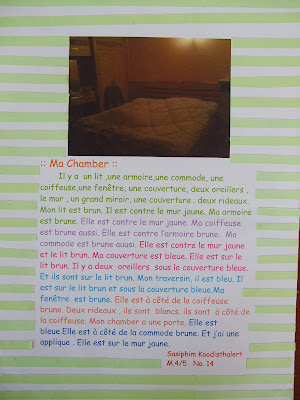 :: Ma Chamber ::
Il y a un lit ,une armoire,une commode, une
coiffeuse,une fenêtre, une couverture, deux oreillers ,
le mur , un grand miroir, une couverture , deux rideaux.
Mon lit est brun. Il est contre le mur jaune. Ma armoire
est brune. Elle est contre le mur jaune. Ma coiffeuse
est brune aussi. Elle est contre l'armoire brune. Ma
commode est brune auusi. Elle est contre le mur jaune
et le lit brun. Ma couverture est bleue. Elle est sur le
lit brun. Il y a deux oreillers sous la couverture bleue.
Et ils sont sur le lit brun. Mon traversin, il est bleu. Il
est sur le lit brun et sous la couverture bleue.Ma
fenêtre est brune. Elle est à côté de la coiffeuse
brune. Deux rideaux , ils sont blancs. ils sont à côté de
la coiffeuse. Mon chamber a une porte. Elle est
bleue.Elle est à côté de la commode brune. Et j'ai une
applique . Elle est sur le mur jaune.
Sasiphim Koodisthalert
M.4/5 No. 14